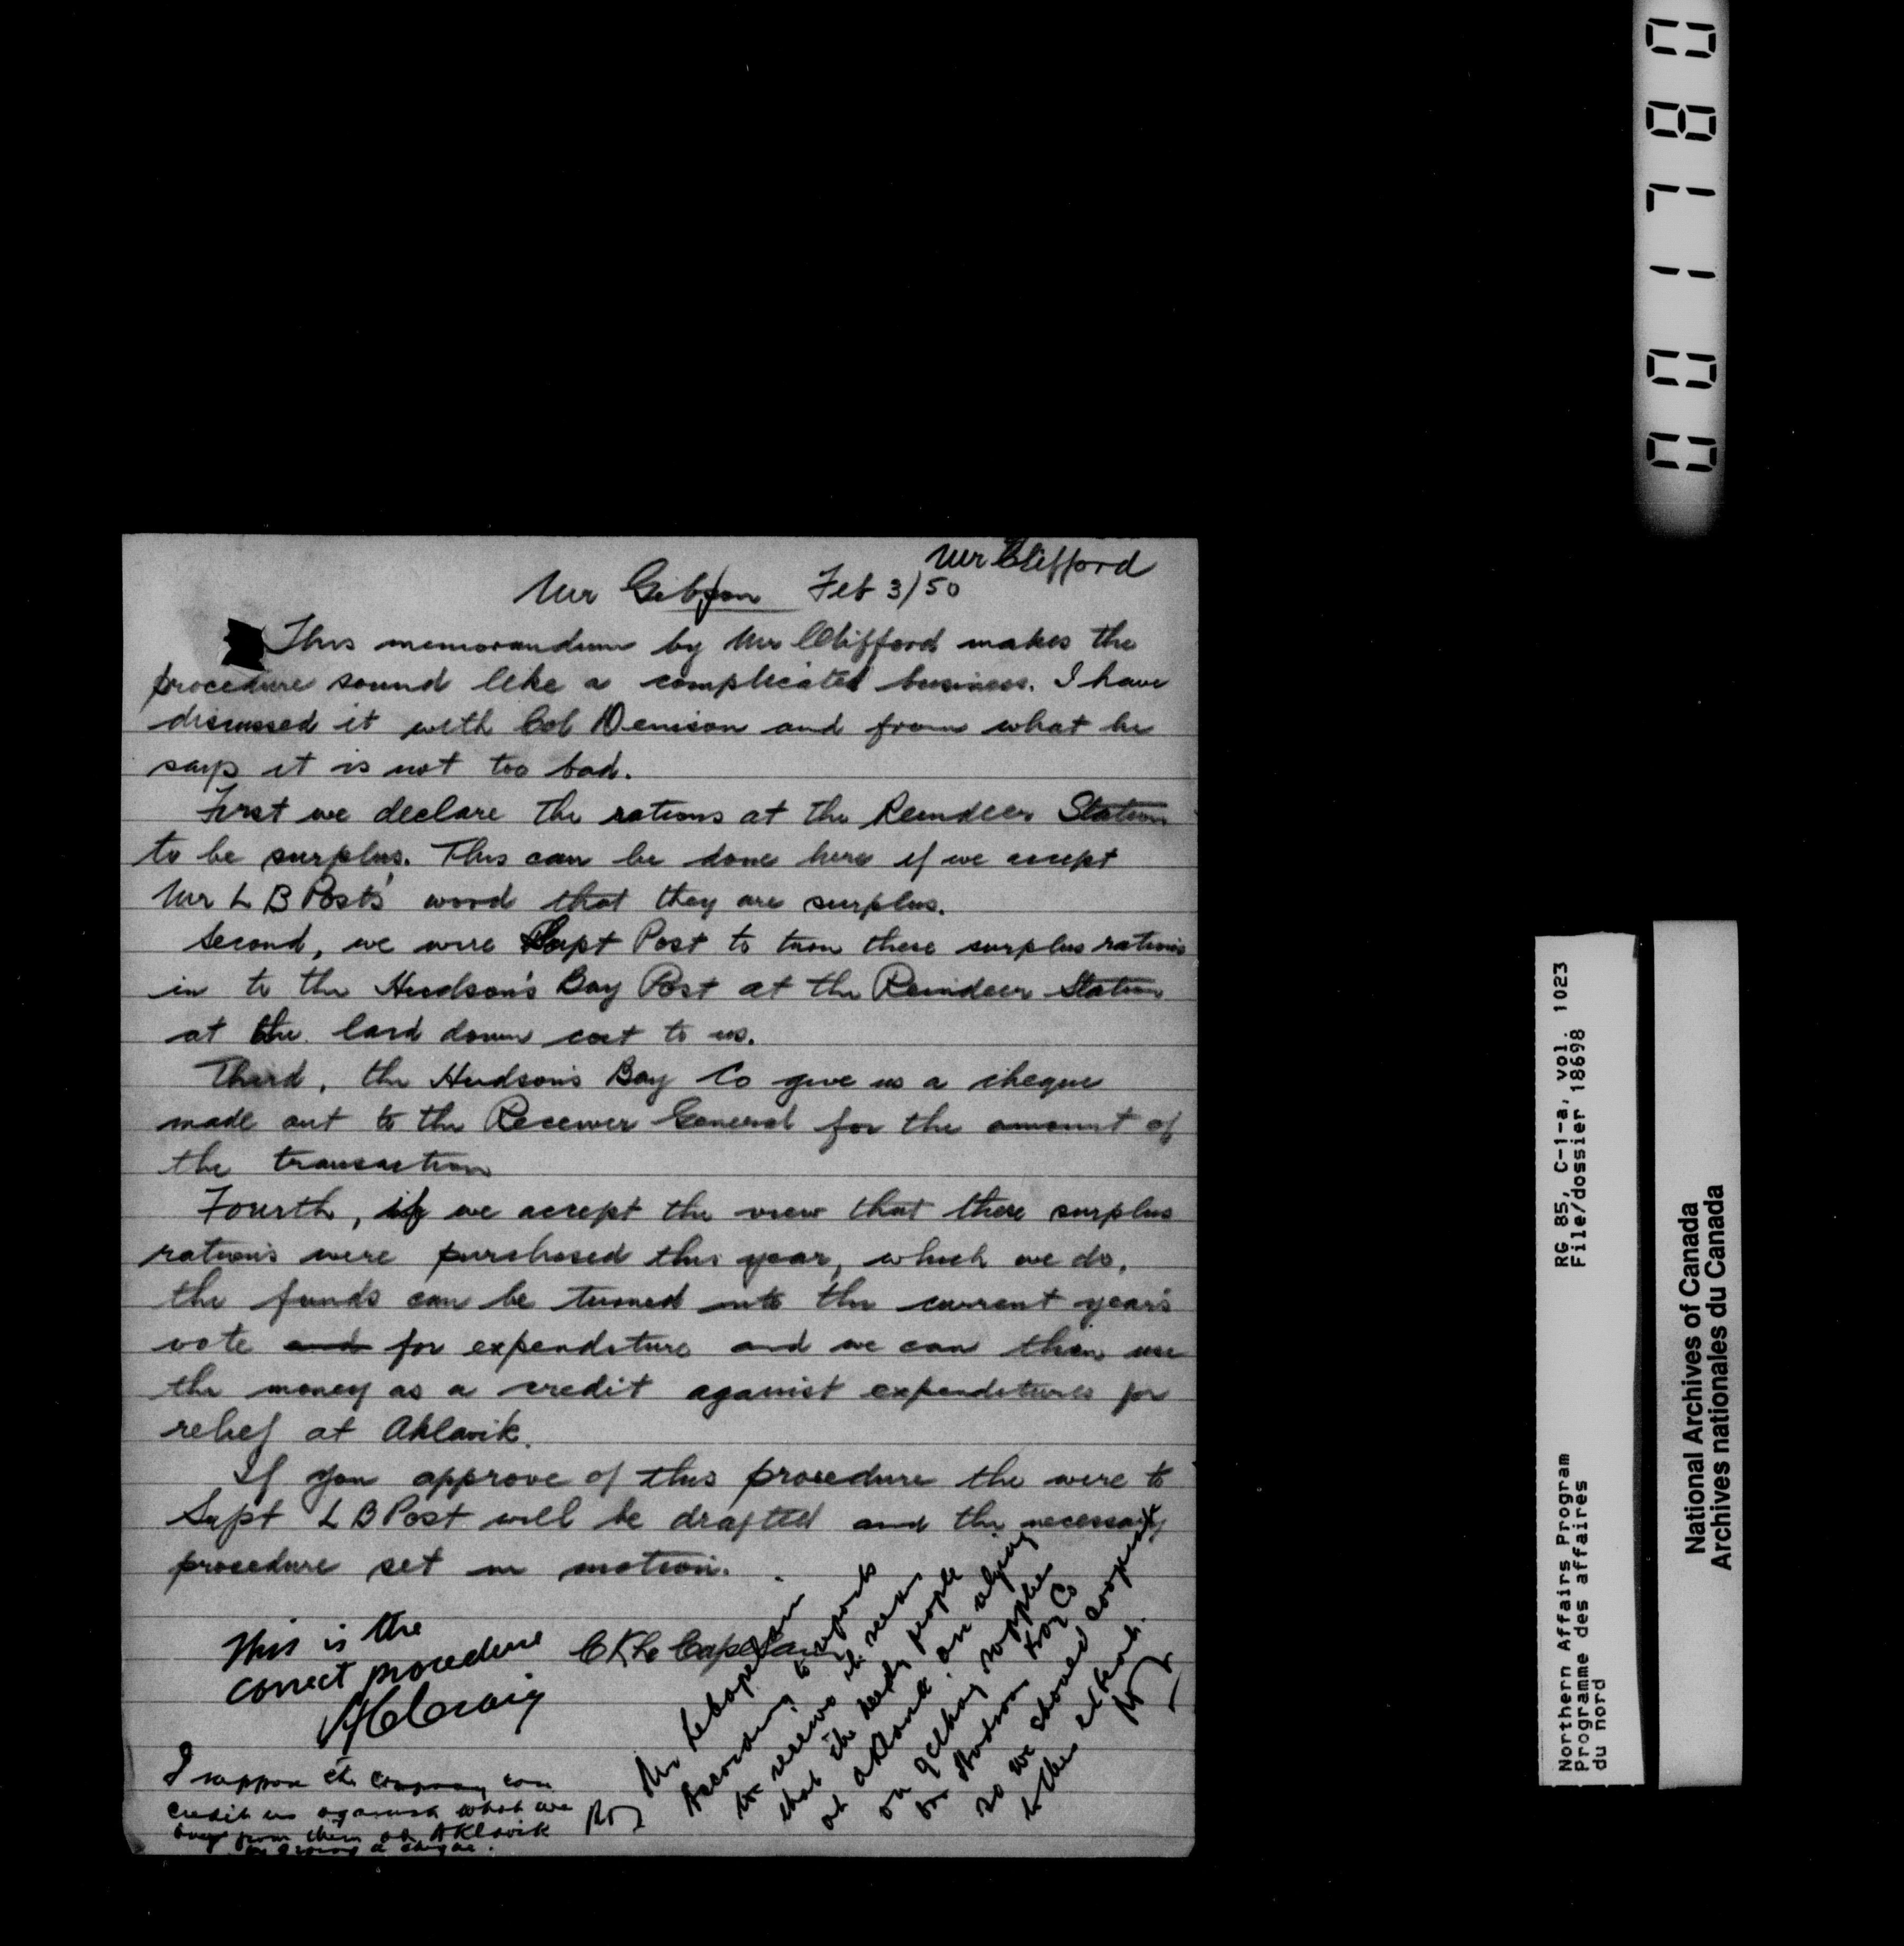 Mr Clifford
Mr Gibson Feb 3/50
This memorandum by Mr Clifford makes the
procedure sound like a complicated business. I have
discussed it with Col Denison and from what he
says it is not too bad.
First we declare the rations at the Reindeer Station
to be surplus. This can be done here if we accept
Mr L B Post's word that they are surplus.
Second, we wire Supt Post to turn these surplus rations
in to the Hudson's Bay Post at the Reindeer Station
at the laid down cost to us.
Third, the Hudson's Bay Co give us a cheque
made out to the Receiver General for the amount of
the transaction
Fourth, if we accept the view that these surplus
rations were purchased this year, which we do,
the funds can be turned into the current year's
vote and for expenditure and we can then use
the money as a credit against expenditures for
relief at Aklavik.
If you approve of this procedure the wire to
Supt L B Post will be drafted and the necessary
procedure set in motion.
This is the
correct procedure
H C Craig
C K Le Capelain
I suppose the Company can
credit us against what we
buy from them at Aklavik
or giving a cheque.
Mr LeCapelain
According to reports
we receive it seems
that the needy people
at Aklavik are relying
on getting supplies
from Hudson Bay Co
so we should cooperate
to this extent.
0 8 7 1 0 0
RG 85, C-1-a, vol. 1023
File/dossier 18698
Northern Affairs Program
Programme des affaires
du nord
National Archives of Canada
Archives nationales du Canada